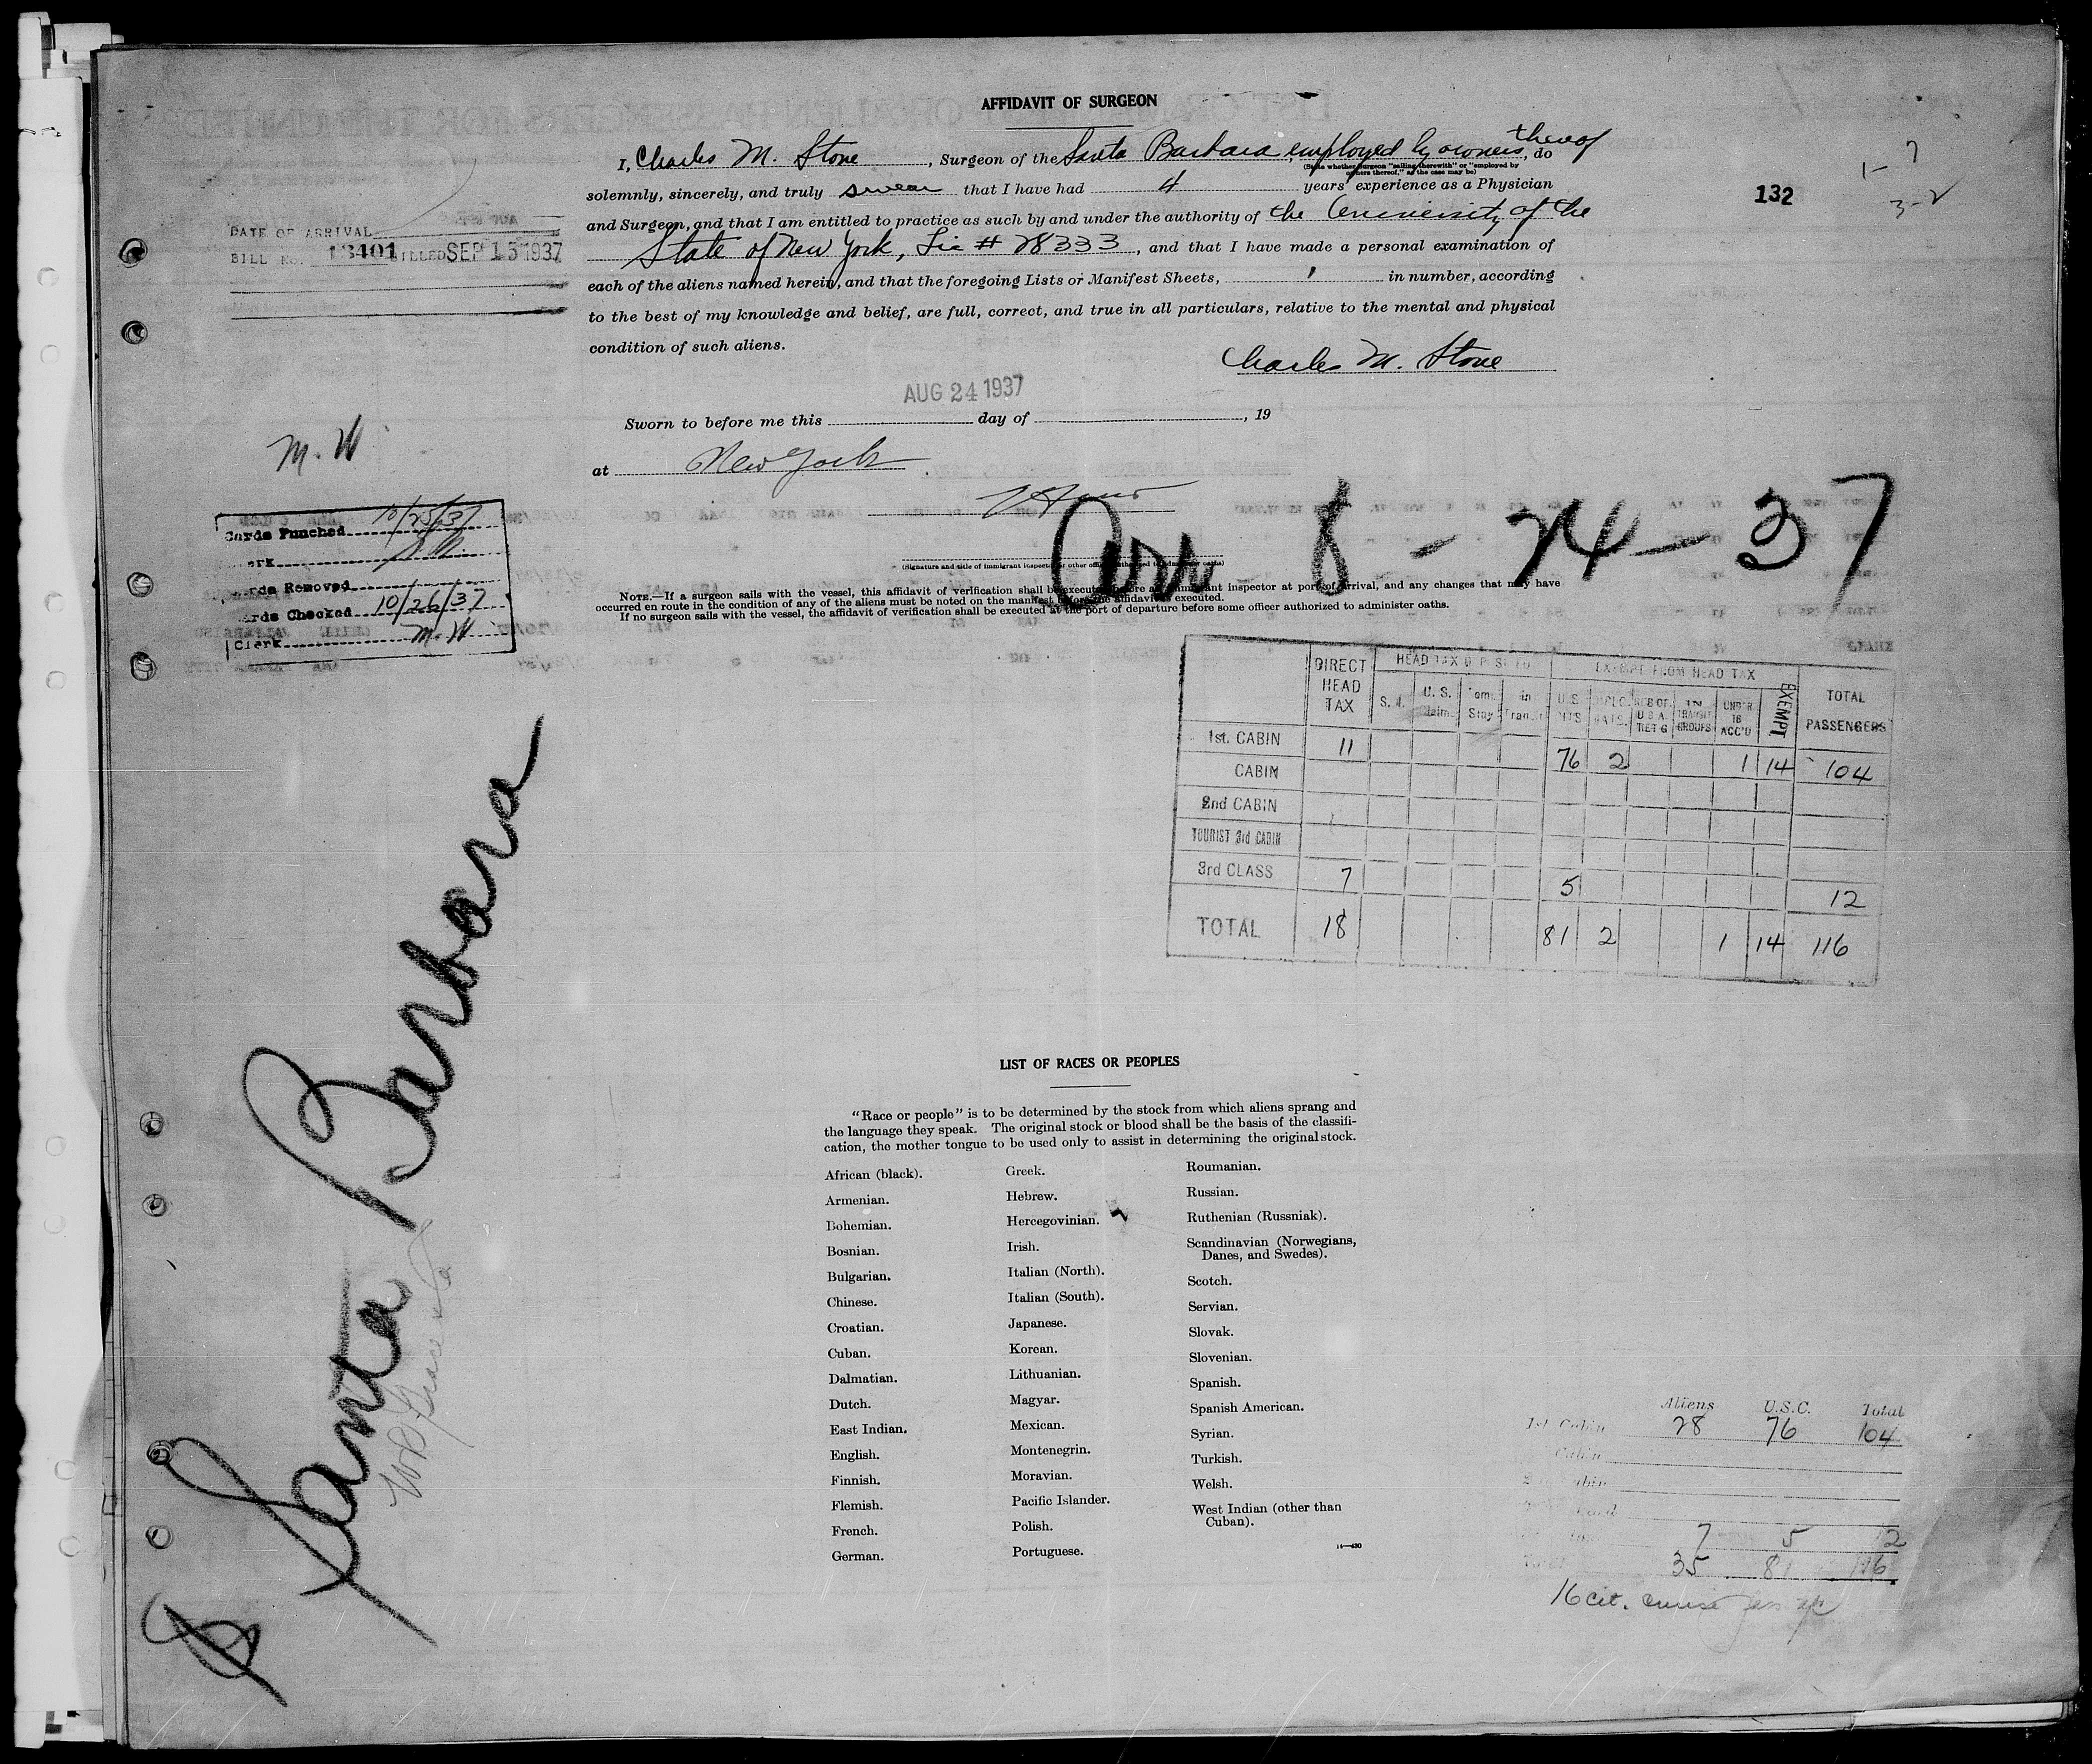 AFFIDAVIT OF SURGEON
I, Charles M. Stone, Surgeon of the Santa Barbara employed by owners thereof, do
(State whether surgeon "sailing therewith" or "employed by
owners thereof," as the case may be)
solemnly, sincerely, and truly swear that I have had 4 years' experience as a Physician
and Surgeon, and that I am entitled to practice as such by and under the authority of the University of the
State of New York, Lic # 28333, and that I have made a personal examination of
each of the aliens named herein, and that the foregoing Lists or Manifest Sheets, 1 in number, according
to the best of my knowledge and belief, are full, correct, and true in all particulars, relative to the mental and physical
condition of such aliens.
Charles M. Stone
132
1-7
3-2
DATE OF ARRIVAL
BILL NO. 13401 BILLED SEP 15 1937
AUG 24 1937
Sworn to before me this day of , 19
at New York
M. W
Arr 8-24-37
Cards Punched 10/25/37
Cards Removed
Cards Checked 10/26/37
Clerk M. W
(Signature and title of immigrant inspector or other officer authorized to administer oaths)
NOTE.—If a surgeon sails with the vessel, this affidavit of verification shall be executed before an immigrant inspector at port of arrival, and any changes that may have
occurred en route in the condition of any of the aliens must be noted on the manifest before the affidavit is executed.
If no surgeon sails with the vessel, the affidavit of verification shall be executed at the port of departure before some officer authorized to administer oaths.
DIRECT HEAD TAX HEAD TAX DEPOSITED EXEMPT FROM HEAD TAX TOTAL PASSENGERS
U.S. Claim Temp Stay In Transit U.S. CITS. DIPLOMATS IN TRANSIT GROUPS UNDER 16 ACC'D EXEMPT
1st. CABIN 11 76 2 1 14 104
CABIN
2nd CABIN
TOURIST 3rd CABIN
3rd CLASS 7 5 12
TOTAL 18 81 2 1 14 116
Santa Barbara
LIST OF RACES OR PEOPLES
"Race or people" is to be determined by the stock from which aliens sprang and
the language they speak. The original stock or blood shall be the basis of the classifi-
cation, the mother tongue to be used only to assist in determining the original stock.
African (black).
Armenian.
Bohemian.
Bosnian.
Bulgarian.
Chinese.
Croatian.
Cuban.
Dalmatian.
Dutch.
East Indian.
English.
Finnish.
Flemish.
French.
German.
Greek.
Hebrew.
Hercegovinian.
Irish.
Italian (North).
Italian (South).
Japanese.
Korean.
Lithuanian.
Magyar.
Mexican.
Montenegrin.
Moravian.
Pacific Islander.
Polish.
Portuguese.
Roumanian.
Russian.
Ruthenian (Russniak).
Scandinavian (Norwegians,
Danes, and Swedes).
Scotch.
Servian.
Slovak.
Slovenian.
Spanish.
Spanish American.
Syrian.
Turkish.
Welsh.
West Indian (other than
Cuban).
Aliens U.S.C. Total
1st Cabin 28 76 104
Cabin
7 5 12
35 81 116
16 cit. cruise